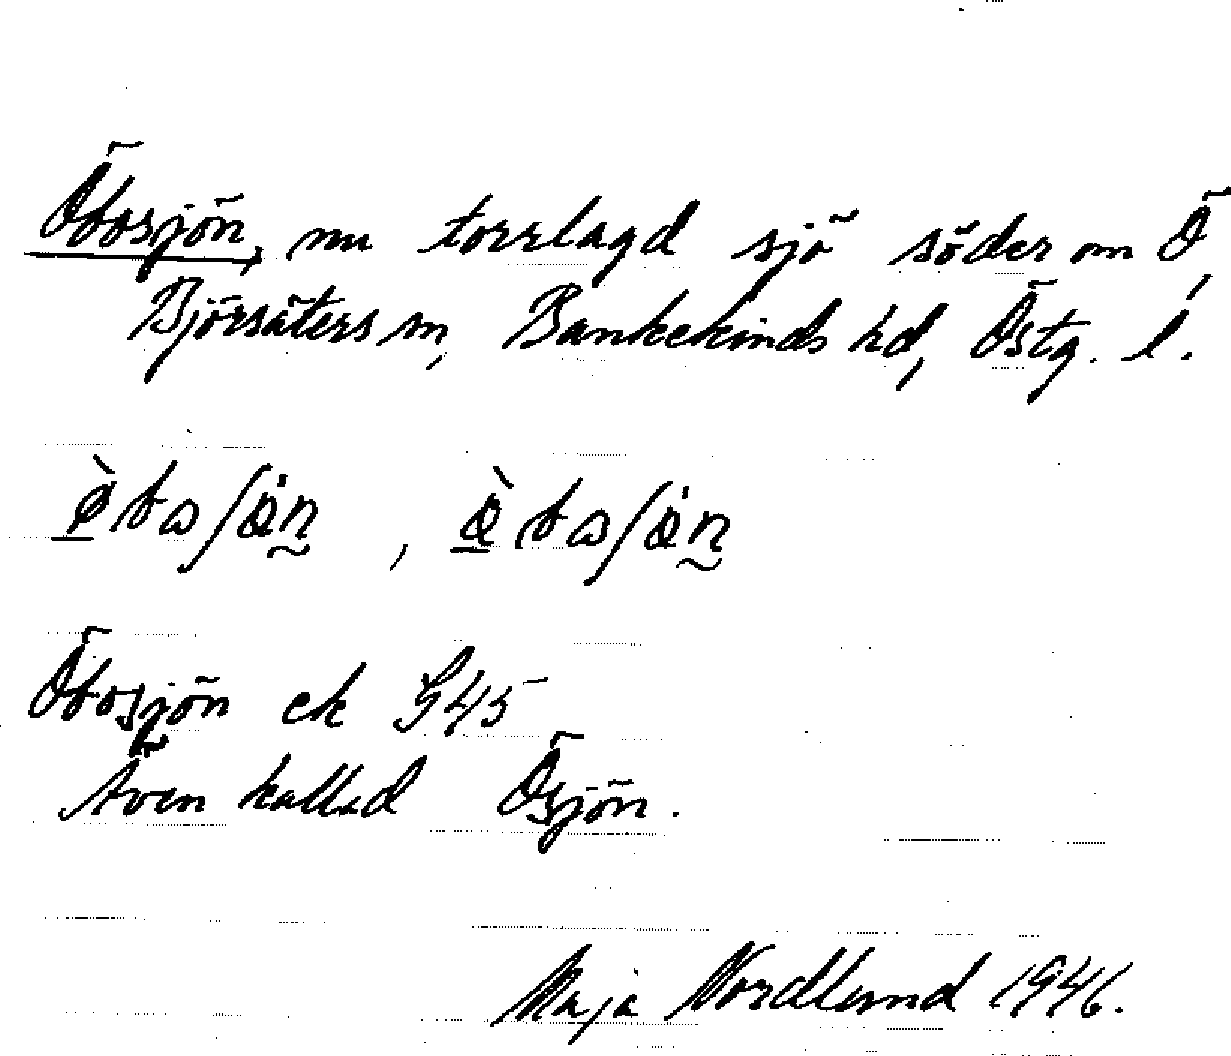 Öbosjön, nu torrlagd sjö söder om Ö,
Björsäters sn, Bankekinds hd, Östg. l.
Öbosjön ek G45
Även kallad Ösjön.
Maja Nordlund 1946.